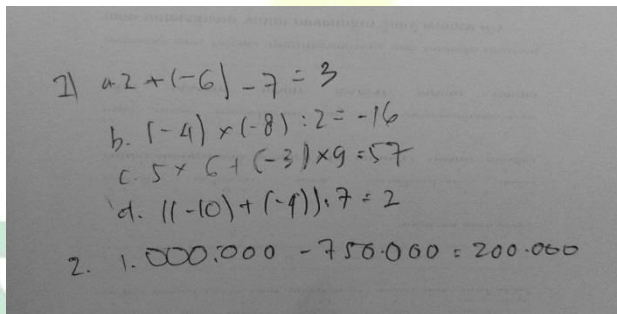 1) a. 2 + (-6) - 7 = 3
b. (-4) × (-8) : 2 = -16
c. 5 × 6 + (-3) × 9 = 57
d. ((-10) + (-4)) : 7 = 2
2. 1.000.000 - 750.000 = 200.000